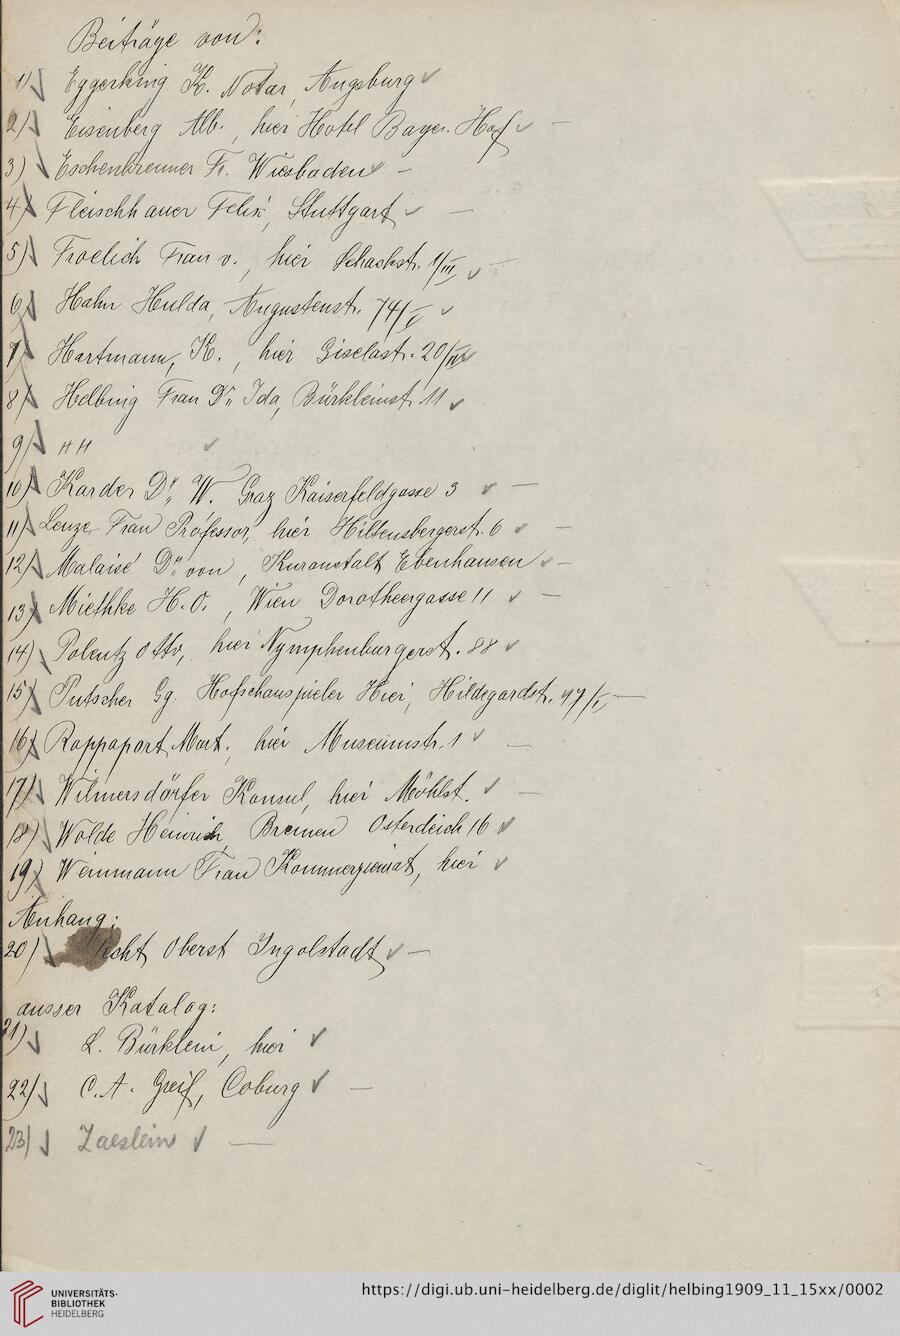 Beiträge von:
1) Eggerking K. Notar, Augsburg
2) Eisenberg Alb., hier Hotel Bayer. Hof —
3) Eschenbrenner Fr. Wiesbaden —
4) Fleischhauer Felix, Stuttgart —
5) Froelich Frau v., hier Schackstr. 1/III —
6) Hahn Hulda, Augustenstr. 74/I
7) Hartmann, K., hier Giselastr. 20/III
8) Helbing Frau Dr. Ida, Bürkleinstr. 11
9) HH
10) Karder Dr. W. Graz Kaiserfeldgasse 3 —
11) Lenze Frau Professor, hier Hiltensbergerstr. 6 —
12) Malaisé Dr. von, Kuranstalt Ebenhausen —
13) Miethke H. O., Wien Dorotheergasse 11 —
14) Polentz Otto, hier Nymphenburgerst. 88
15) Putscher Gg. Hofschauspieler Hier, Hildegardstr. —
16) Rappaport Mart. hier Museumstr. 1 —
17) Wilmersdörfer Konsul, hier Möhlst. —
18) Wolde Heinrich, Bremen Osterdeich 16
19) Weinmann Frau Kommerzienrat, hier
Anhang:
20) Oberst Ingolstadt —
ausser Katalog:
21) L. Bürklein, hier
22) C. A. Greif, Coburg —
23) Zaeslein —
UNIVERSITÄTS-
BIBLIOTHEK
HEIDELBERG
https://digi.ub.uni-heidelberg.de/diglit/helbing1909_11_15xx/0002